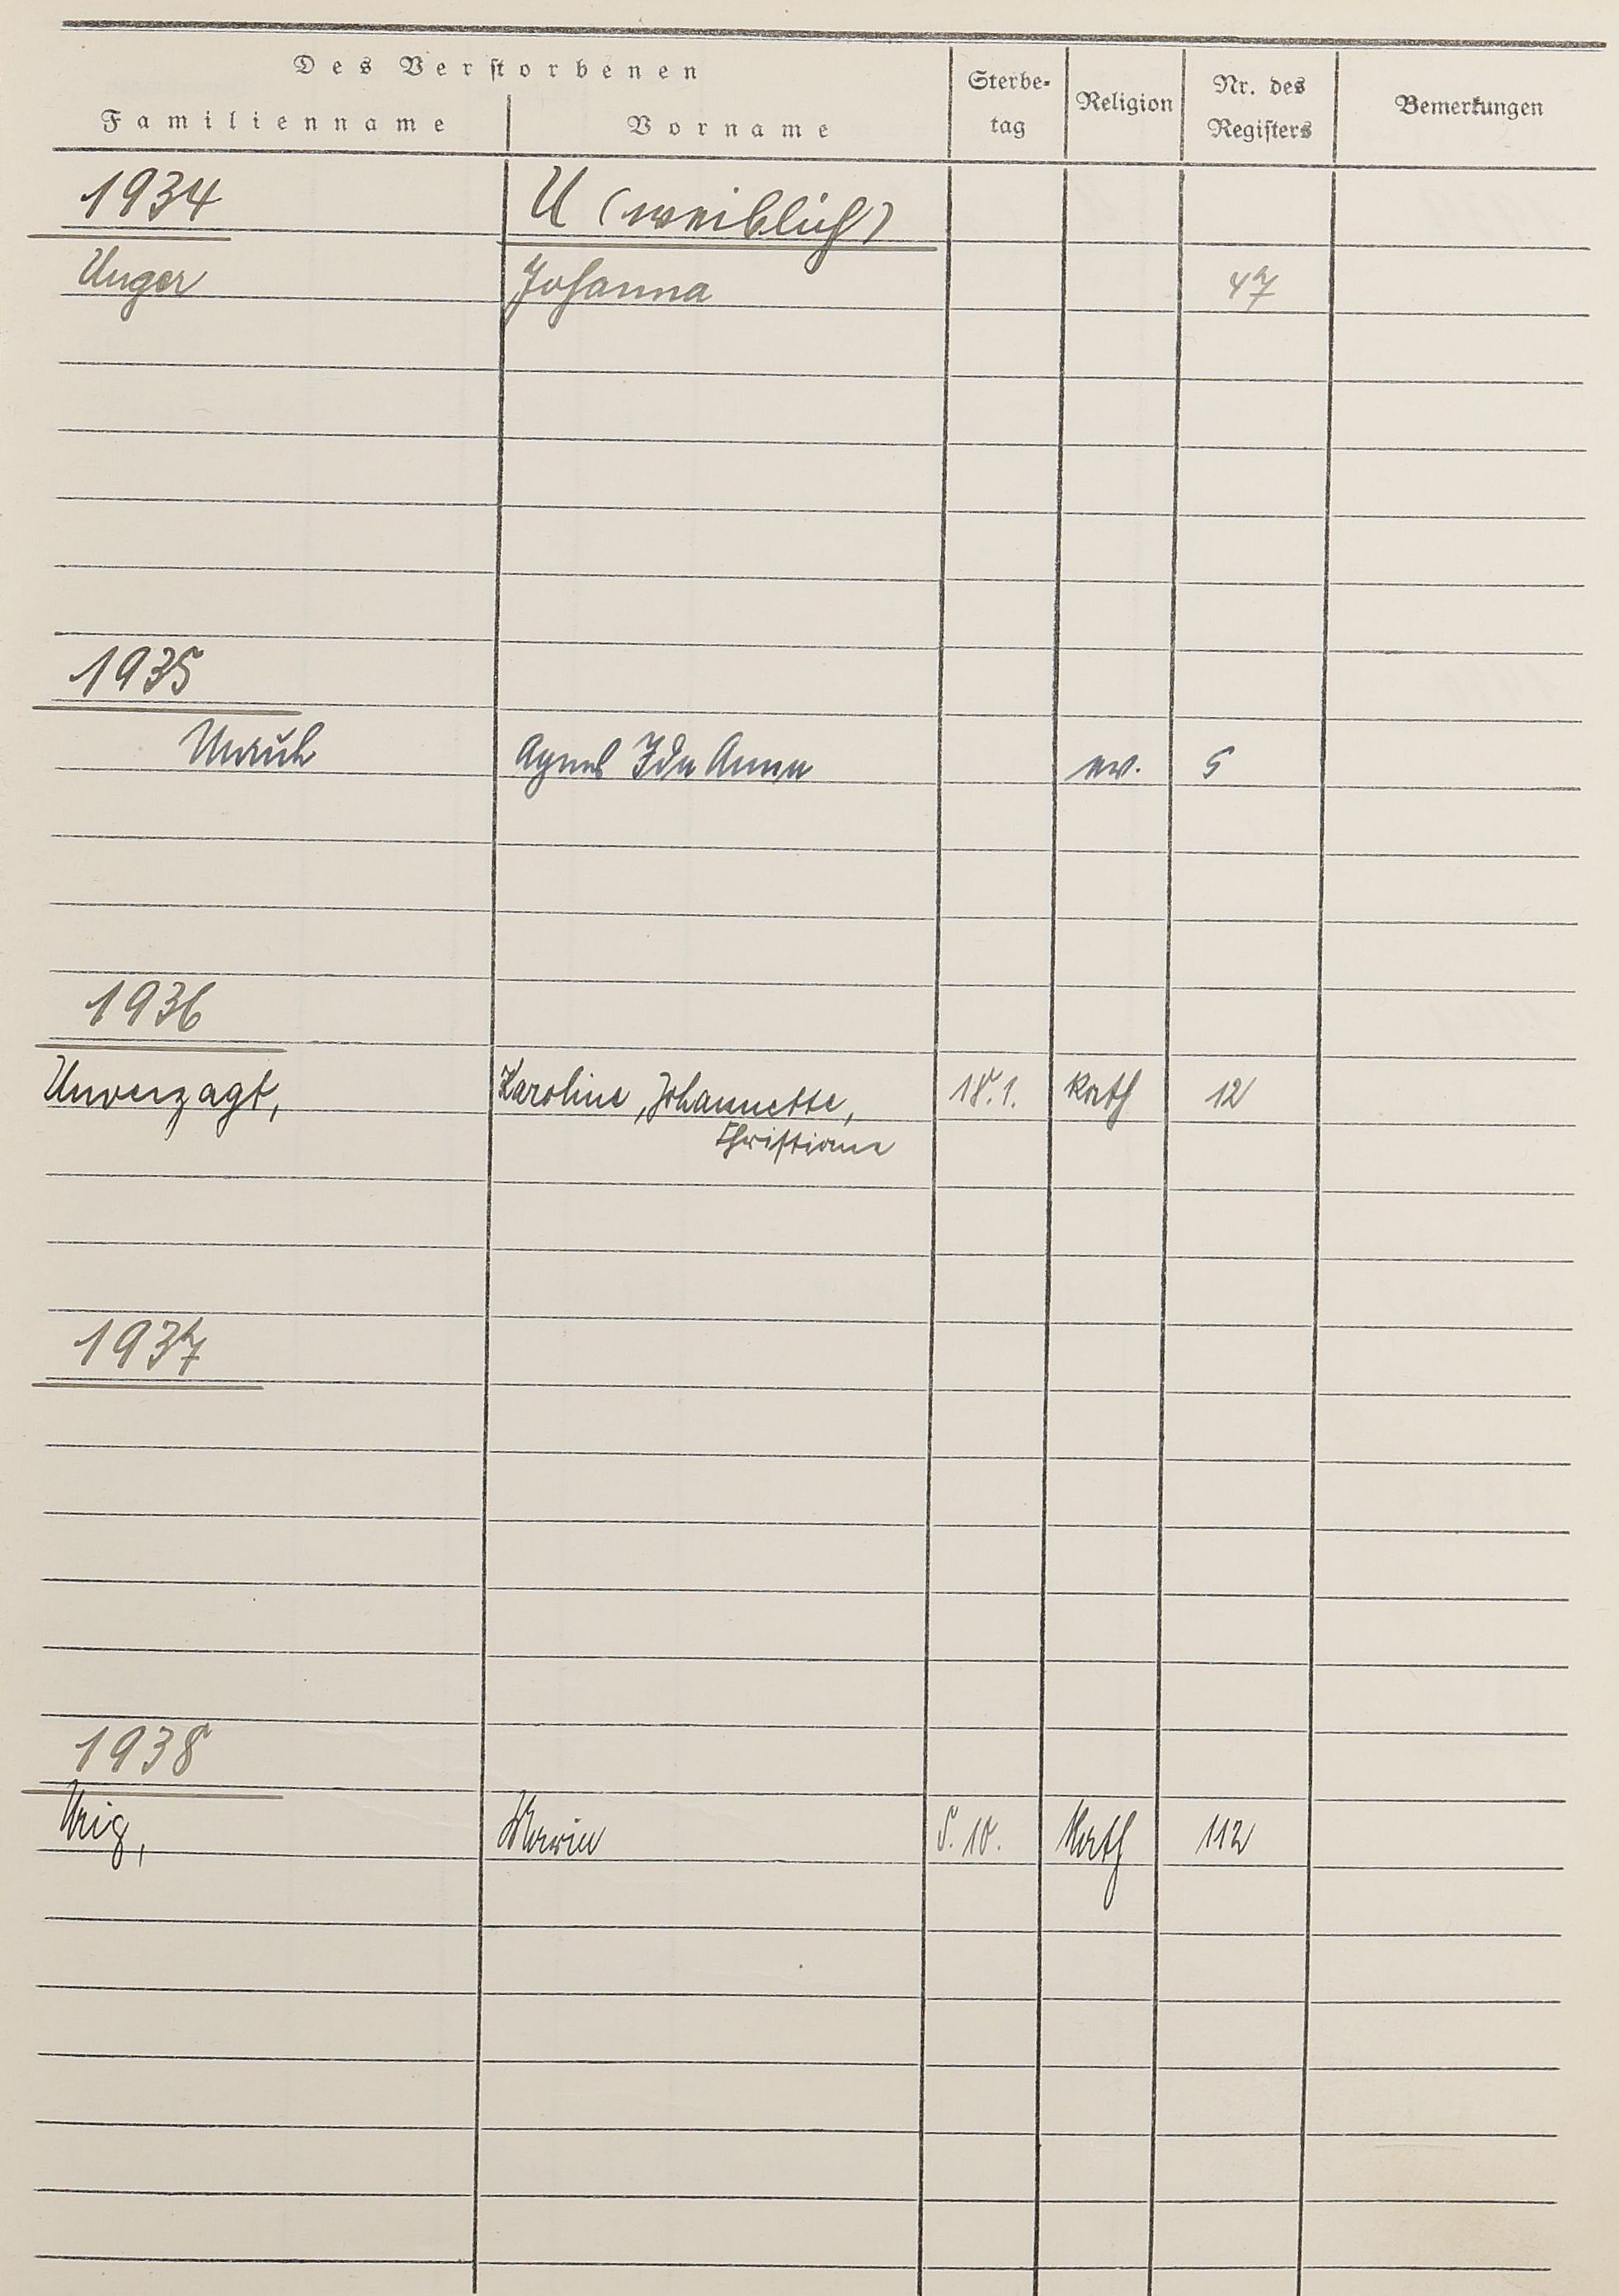 Des Verstorbenen
Familienname Vorname Sterbe-tag Religion Nr. des Registers Bemerkungen
1934 U (weiblich)
Unger Johanna 47
1935
Unruh Agnes Ida Anna ev. 5
1936
Unverzagt, Karoline, Johannette, 18.1. Kath 12
Christiane
1937
1938
10. Kath 112